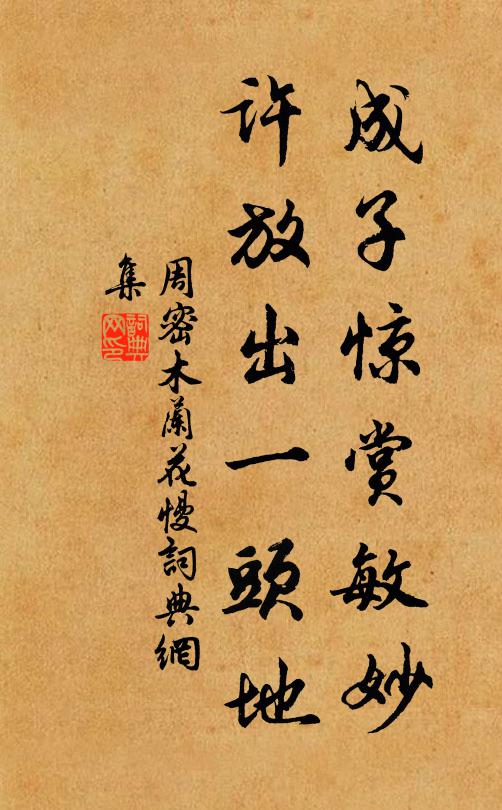 成子惊赏敏妙
许放出一頭地
周密木蘭花慢詞典網
集
詞典网印